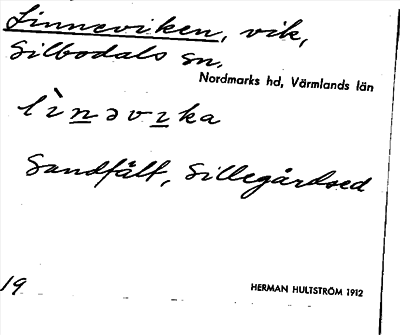 Linneviken, vik,
Silbodals sn.
Nordmarks hd, Värmlands län
lìnəvıka
Sandfält, Sillegårdsed
19
HERMAN HULTSTRÖM 1912